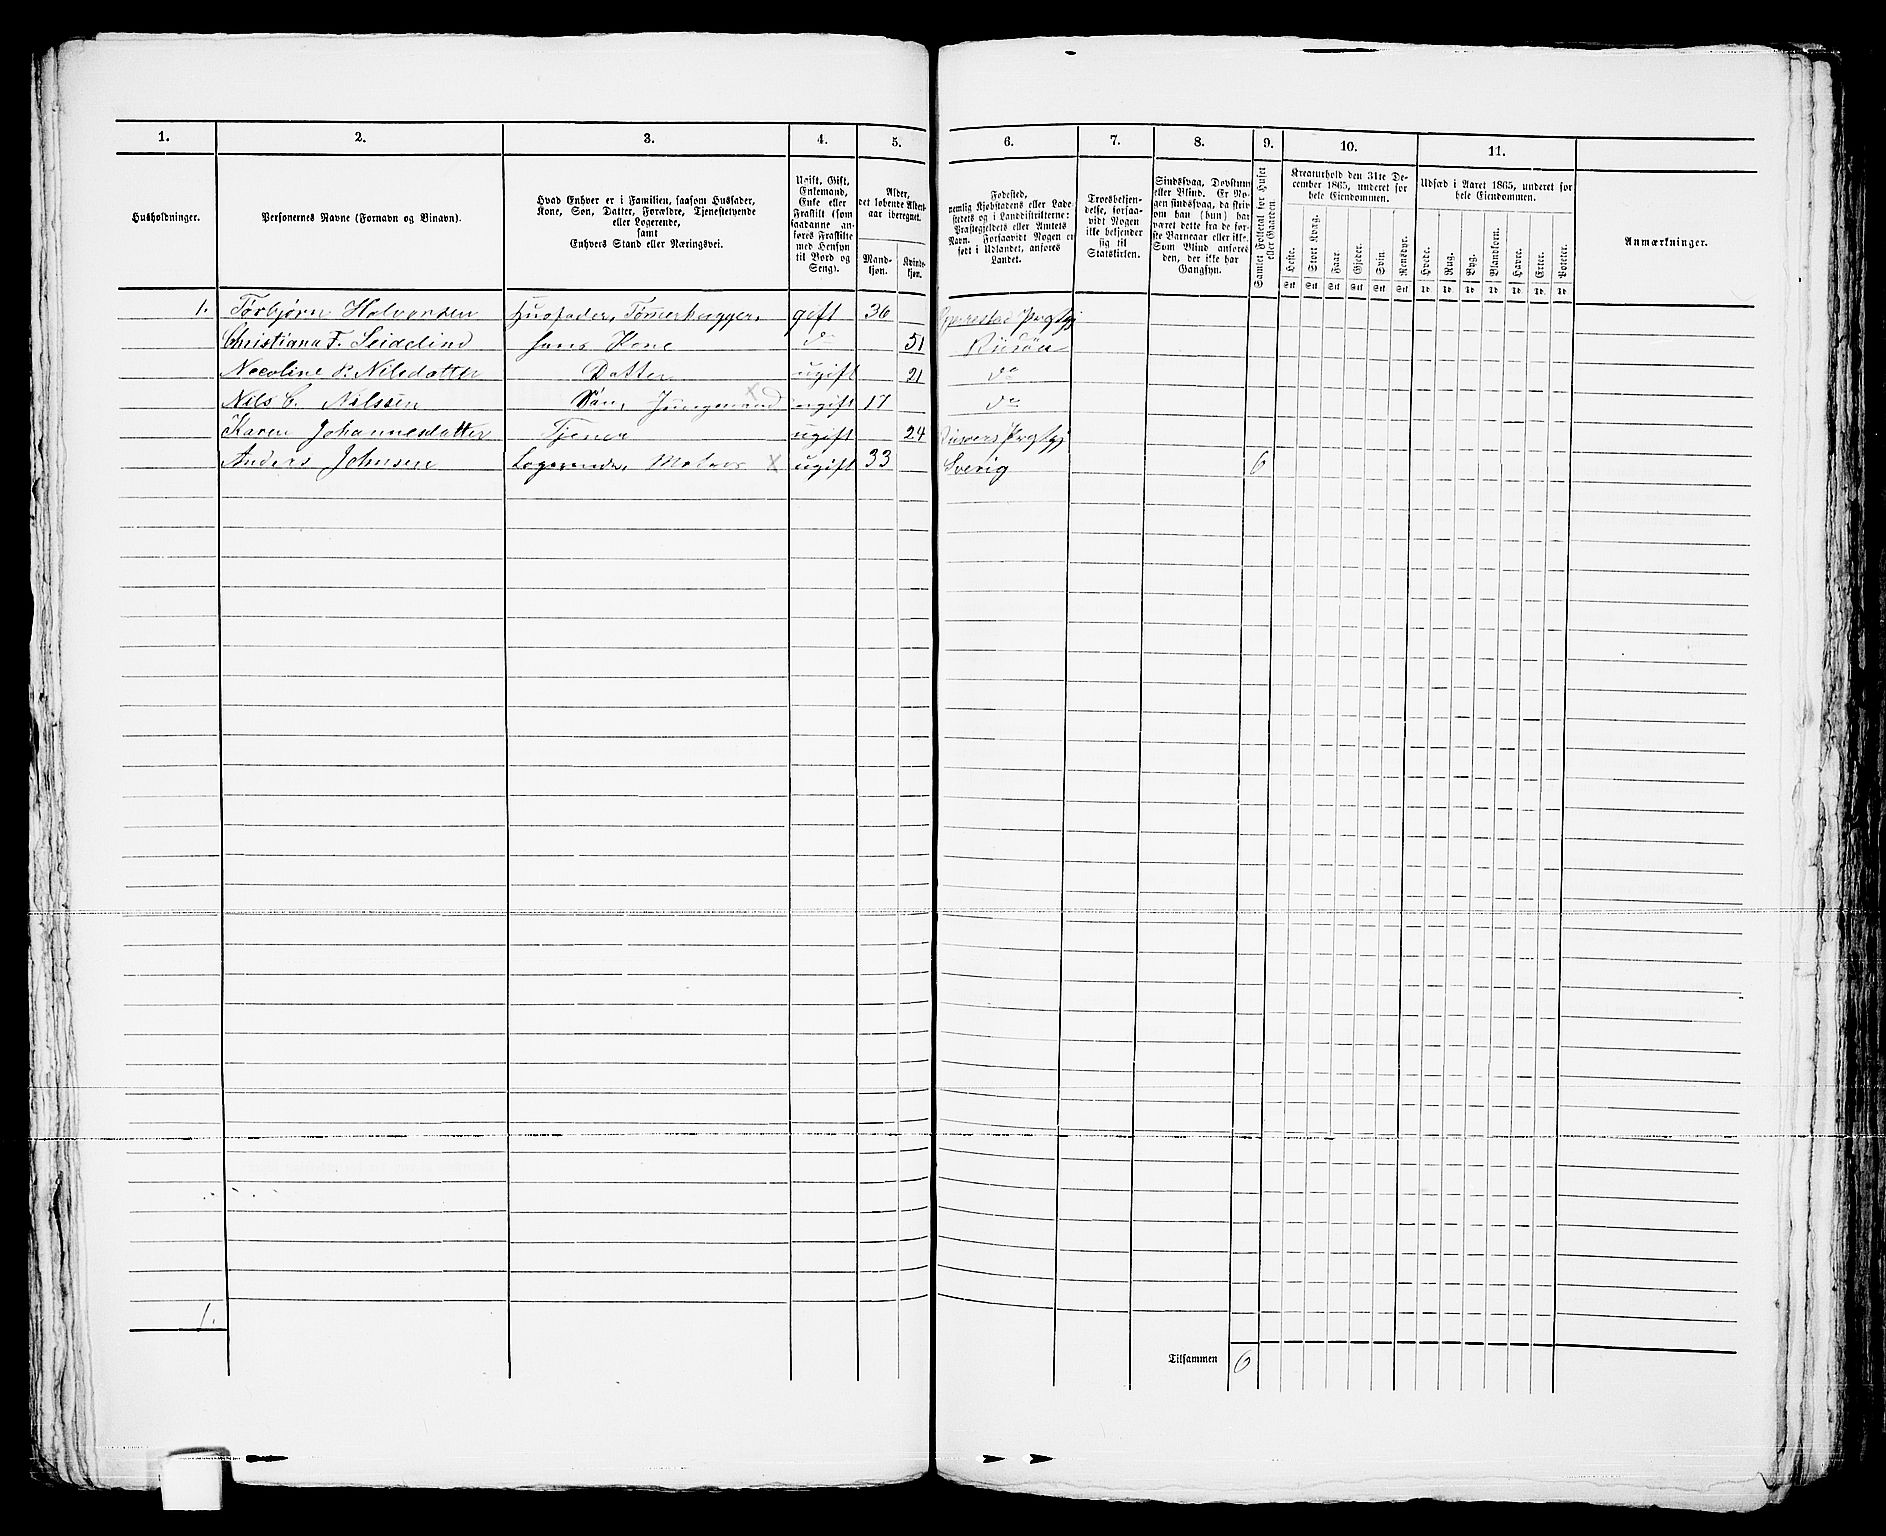 1. 2. 3. 4. 5. 6. 7. 8. 9. 10. 11.
Husholdninger.
Personernes Navne (Fornavn og Binavn).
Hvad Enhver er i Familien, saasom Husfader,
Kone, Søn, Datter, Forældre, Tjenestetyende
eller Logerende,
samt
Enhvers Stand eller Næringsvei.
Ugift, Gift,
Enkemand,
Enke eller
Fraskilt (som
saadanne an-
føres Fraskilte
med Hensyn
til Bord og
Seng).
Alder,
det løbende Alders-
aar iberegnet.
Mand-
kjøn.
Kvinde-
kjøn.
Fødested,
nemlig Kjøbstadens eller Lade-
stedets og i Landdistrikterne:
Præstegjeldets eller Amtets
Navn. Forsaavidt Nogen er
født i Udlandet, anføres
Landet.
Troesbekjen-
delse, forsaa-
vidt Nogen
ikke bekjender
sig til
Statskirken.
Sindssvag, Døvstum
eller Blind. Er No-
gen sindssvag, da skri-
ves om han (hun) har
været dette fra de før-
ste Barneaar eller ikke.
Som Blind anføres
den, der ikke har
Gangsyn.
Samlet Folketal for Huset
eller Gaarden.
Kreaturhold den 31te De-
cember 1865, underet for
hele Eiendommen.
Heste. Stort Kvæg. Faar. Gjeder. Svin. Rensdyr.
Stk Stk Stk Stk Stk Stk
Udsæd i Aaret 1865, underet for
hele Eiendommen.
Hvede. Rug. Byg. Blandkorn. Havre. Erter. Poteter.
Td. Td. Td. Td. Td. Td. Td.
Anmærkninger.
1. Torbjørn Halvorsen Husfader, Tømerhugger, gift 36 Gjerrestad Prgtgj
Christiana F. Seidelind hans Kone do 51 Riisøer
Necoline P. Nilsdatter Datter ugift 21 do
Nils C. Nilssen Søn, Jungmand ugift 17 do
Karen Johannesdatter Tjener ugift 24 Prgtgj
Anders Johnsen Logerende, Matros x ugift 33 Sverig 6
1.
Tilsammen 6